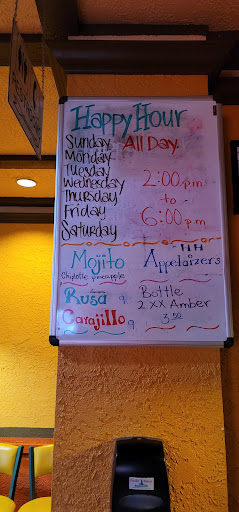 Happy Hour
Sunday All Day
Monday
Tuesday
Wednesday 2:00 pm
Thursday to
Friday 6:00 pm
Saturday
HH
Mojito Appetaizers
Chipotle pineapple
Rusa 9 Bottle
2 XX Amber
Carajillo 9 3.50